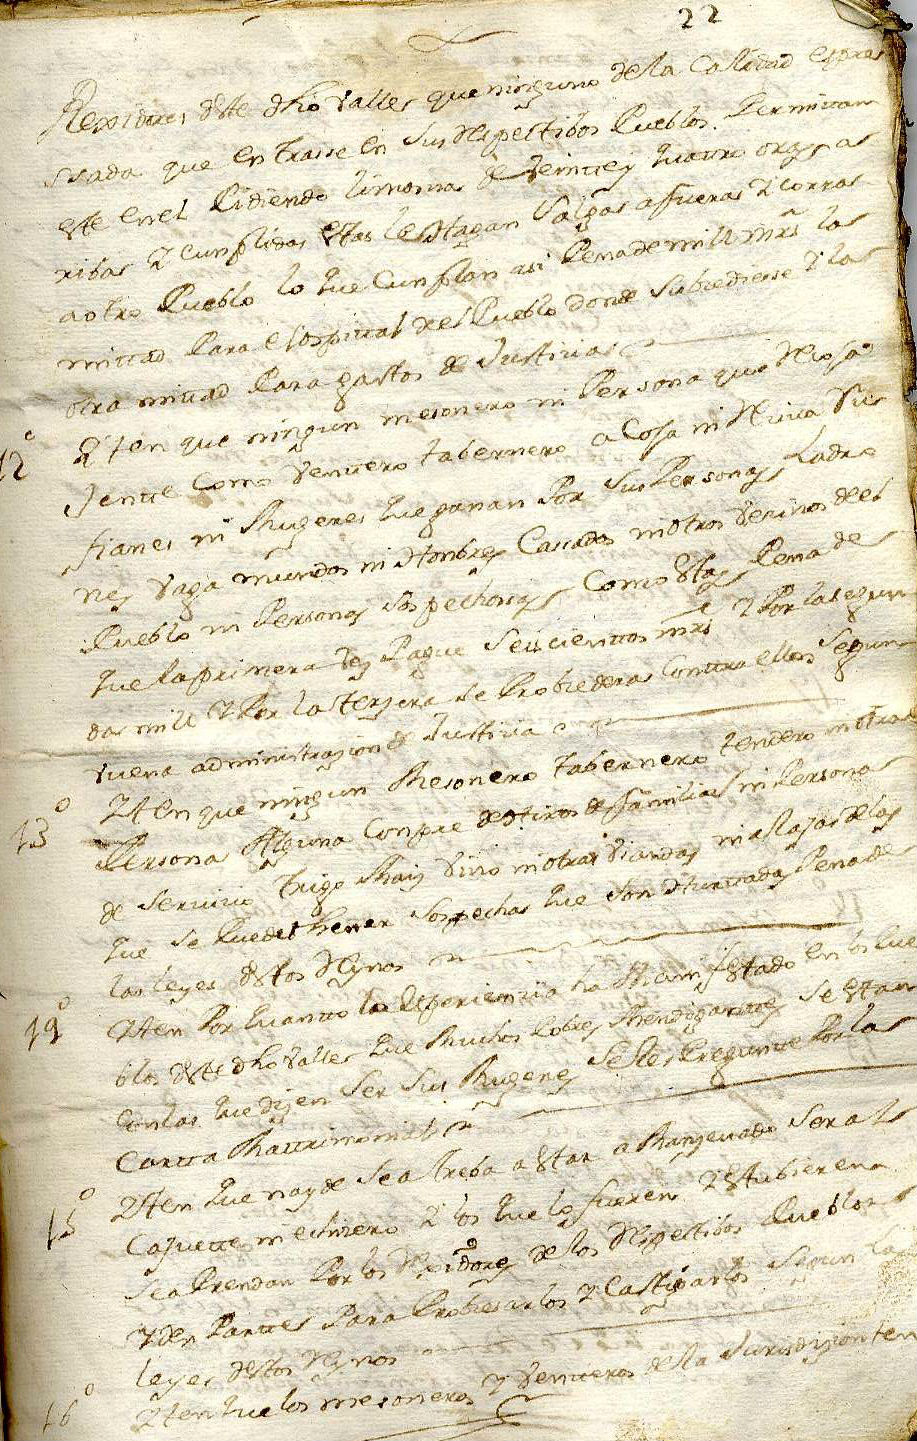 22
Rexidores deste dho Valles que ninguno de la Calidad espres
ssada que entrasse en sus Respectibos Pueblos Permitan
este en el Pidiendo limosnas de Veintte y quatro oras a
rribas y cunplidas estas les agan salgas afueras y corras
a otro Pueblo lo que Cunplan asi Pena de mill mrs las
mittad Para el ospittal del Pueblo donde subcediesse y las
otra mittad Para gastos de Justicias
12º Yten que ningun mesonero ni Persona que Recosa
Jentte Como Venttero tabernero acoja ni Reciva Ru
fianes ni Mugeres que ganan Por sus Personas Ladro
nes Vaga mundos ni Honbres Cassados ni otros Vecinos de el
Pueblo ni Personas sospechosas Como estas Pena de
que la primera Vez Pague seiscienttos mrs y Por la segun
das mill y Por la terzera se Probederas Conttra ellos segun
vuena administrazion de Justicia
13º Yten que ningun Mesonero tabernero tendero ni otras
Persona Alguna Conpre de Hixos de familias ni Personas
de servicio trigo Maiz Vino ni otras Viandas ni alajas de las
que se Puedet thener sospechas que son Hurttadas Pena de
las leyes destos Reynos
14º Yten Por quantto la Experienzia ha Manifestado en los Pue
blos deste dho Valles que Muchos Pobres Mendigantes se estan
con las que dizen ser sus Mugeres se les Pregunte Por las
Cartta Mattrimonial
15º Yten que nayde se a treba a estar a Manzevado ser al
cajuette ni echizero y los que lo fueren y estubieren
se a Prendan Por los Rexidores de los Respectibos Pueblos
y den Parttes Para Prozesarlos y Castigarlos segun las
leyes destos Reynos
16º Yten que los mesoneros y Ventteros de esta Jurisdizion ten